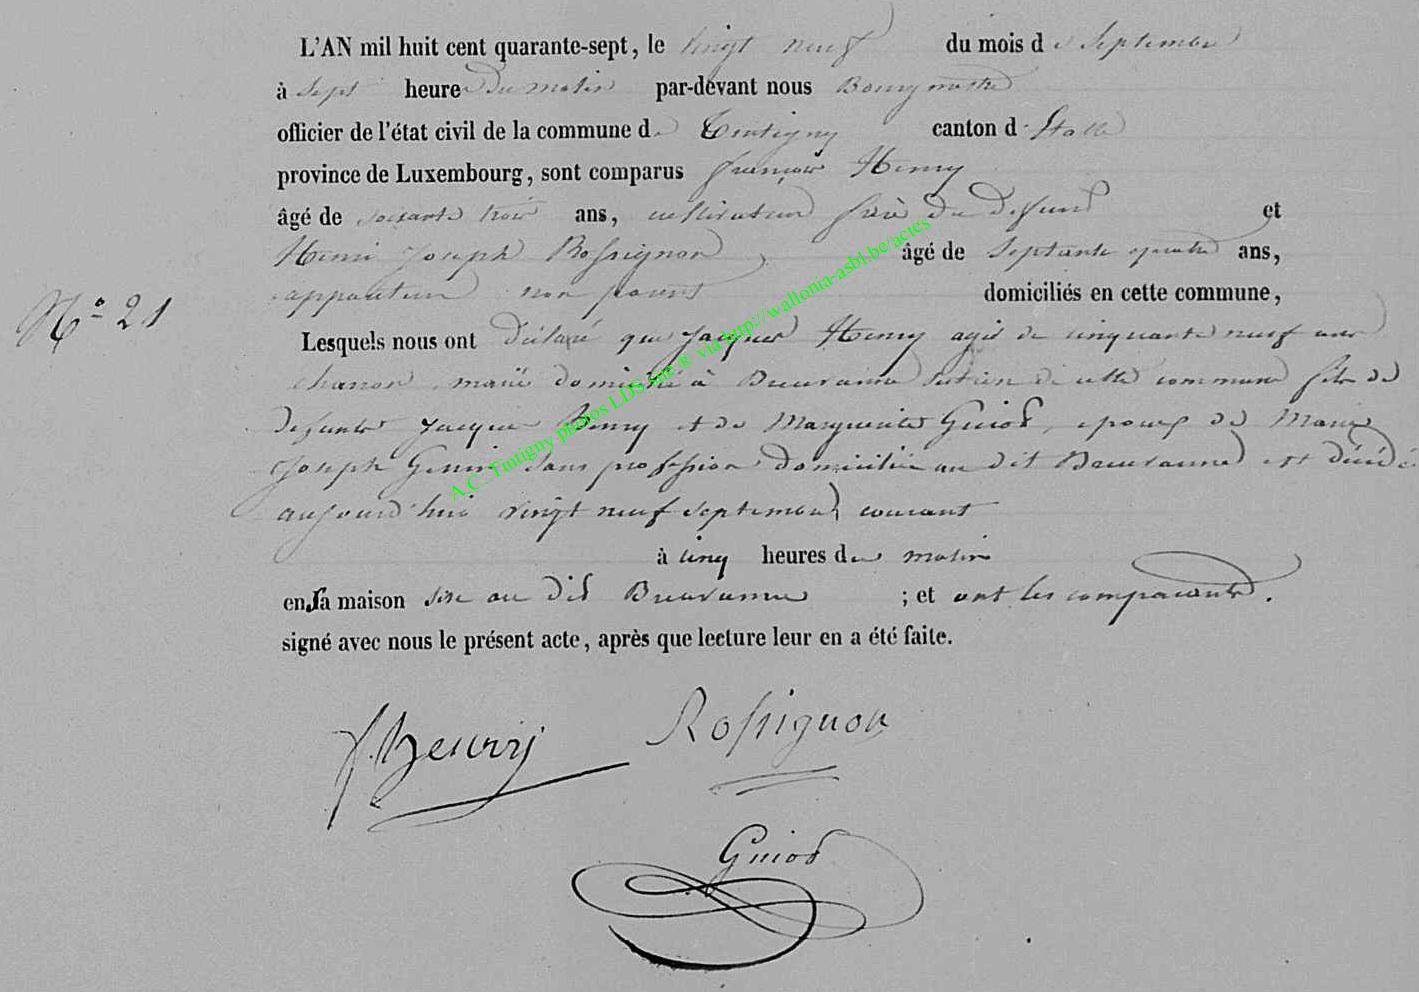 L'AN mil huit cent quarante-sept, le vingt neuf du mois de Septembre
à sept heure du matin par-devant nous Bourgmestre
officier de l'état civil de la commune de Tintigny canton d'Etalle
province de Luxembourg, sont comparus François Henry
âgé de soixante trois ans, cultivateur frère du defunt et
Henri Joseph Rossignon âgé de septante quatre ans,
appariteur non parent domiciliés en cette commune,
N° 21
Lesquels nous ont déclaré que Jacques Henry agé de cinquante neuf ans
charron, marié domicilié à Breuvanne section de cette commune fils de
defunts Jacques Henry et de Marguerite Guiot, epoux de Marie
Joseph sans profession domiciliée au dit Breuvanne est décédé
aujourd'hui vingt neuf septembre courant
à cinq heures du matin
en sa maison sise au dit Breuvanne ; et ont les comparants.
signé avec nous le présent acte, après que lecture leur en a été faite.
f. henry Rossignon
Guiot
A.C. Tintigny photos LDS site ® via http://wallonia-asbl.be/actes